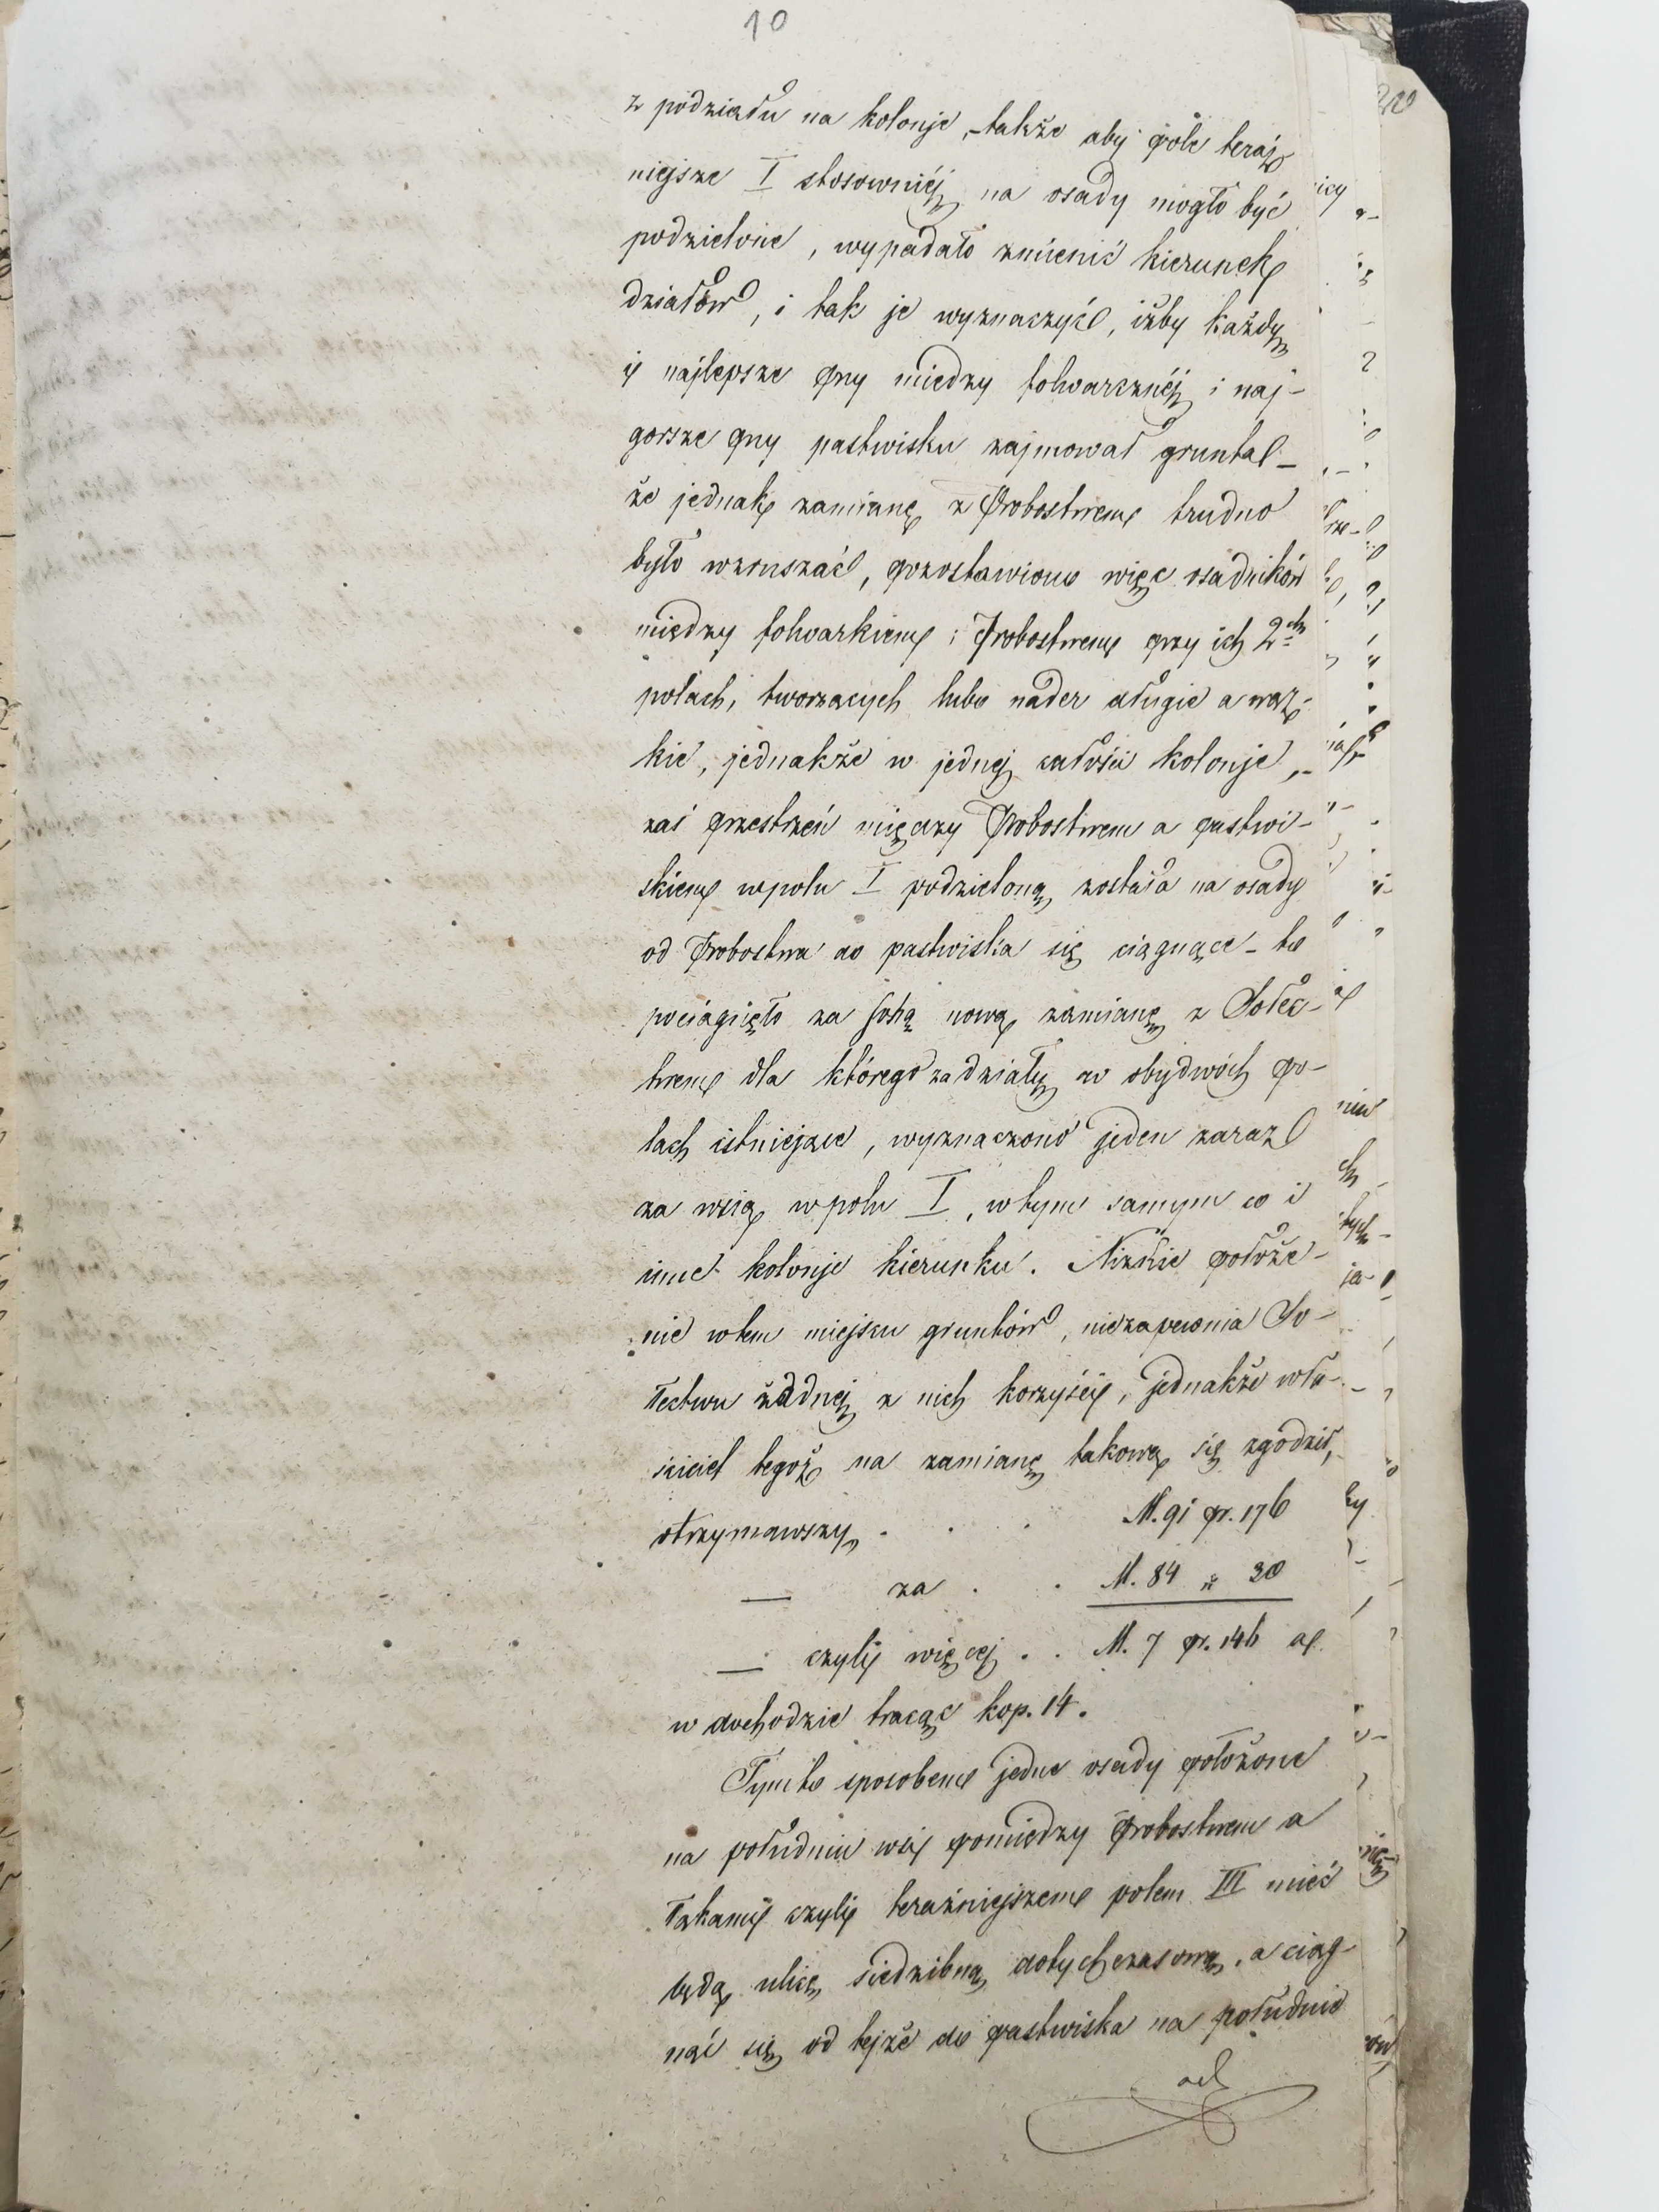 10
z podziału na kolonje, – także aby pole teraź
niejsze I stosowniéj na osady mogło być
podzielone, wypadało zmienić kierunek
działów, i tak je wyznaczyć, iżby każdy
i najlepsze przy miedzy folwarcznéj i naj-
gorsze przy pastwisku zajmował grunta –
że jednak zamianę z Probostwem trudno
było wzruszać, pozostawiono więc osadników
między folwarkiem i Probostwem przy ich 2ch
polach, tworzących lubo nader długie a wąz-
kie, jednakże w jednej całości kolonje, –
zaś przestrzeń między Probostwem a pastwi-
skiem w polu I podzieloną została na osady
od Probostwa do pastwiska się ciągnące – to
pociągnęło za sobą nową zamianę z Sołec-
twem dla którego za działy w obydwóch po-
lach istniejące, wyznaczono jeden zaraz
za wsią w polu I, w tym samym co i
inne kolonje kierunku. Nizkie położe-
nie w tem miejscu gruntów, niezapewnia So-
łectwu żadnej z nich korzyści, jednakże wła-
ściciel tegoż na zamianę takową się zgodził,
otrzymawszy . . . M. 91 pr. 176
— za . . M. 84 " 30
— czyli więcej . . M. 7 pr. 146 a
w dochodzie tracąc kop. 14.
Tym to sposobem jedne osady położone
na południu wsi pomiędzy Probostwem a
łąkami czyli teraźniejszem polem III mieć
będą ulicę siedzibną dotychczasową, a ciąg-
nąć się od tejże do pastwiska na południe
od